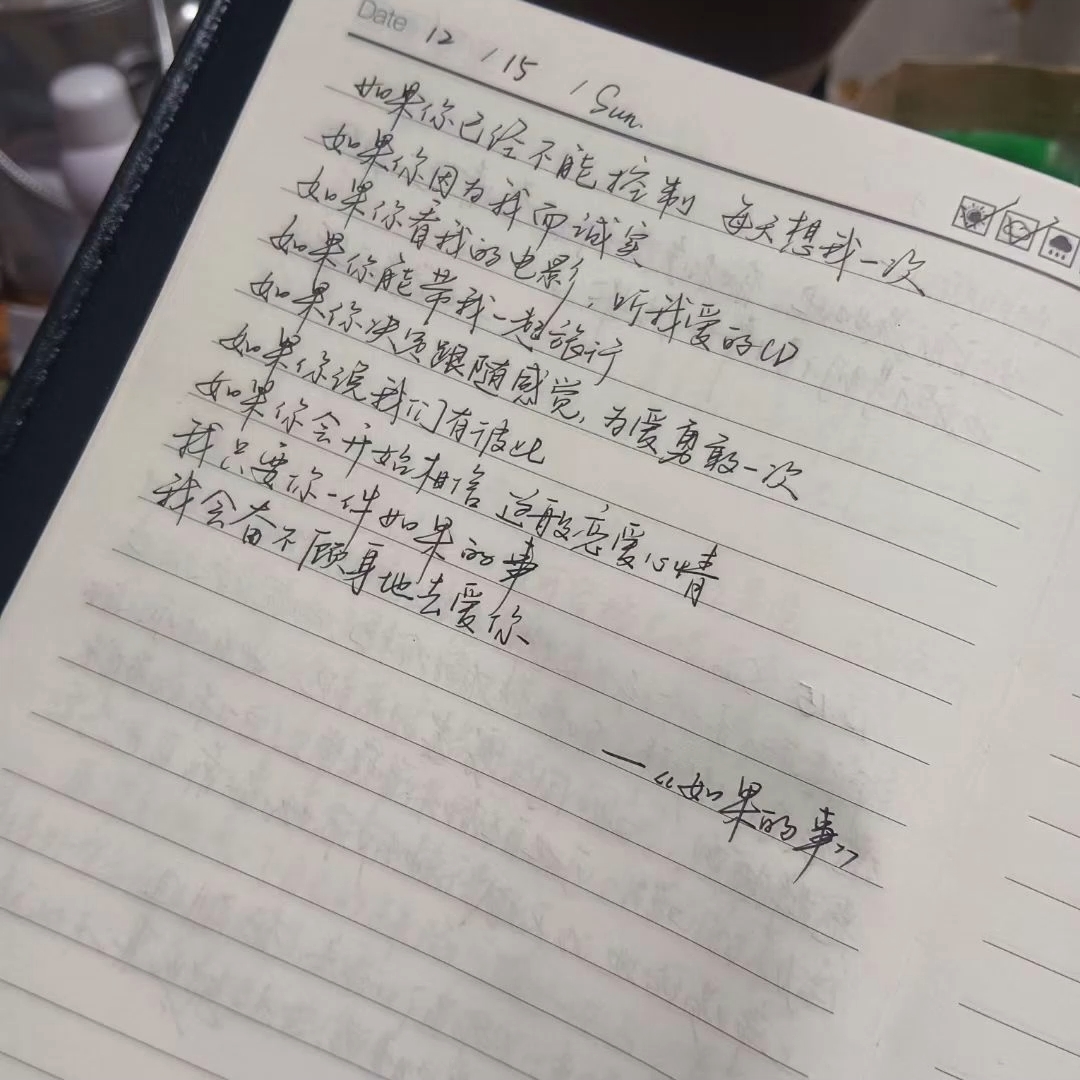 Date 12 / 15 / Sun.
如果你已经不能控制 每天想我一次
如果你因为我而诚实
如果你看我的电影，听我爱的CD
如果你能带我一起旅行
如果你决定跟随感觉，为爱勇敢一次
如果你说我们有彼此
如果你会开始相信 这般恋爱心情
我只要你一件如果的事
我会奋不顾身地去爱你
—《如果的事》